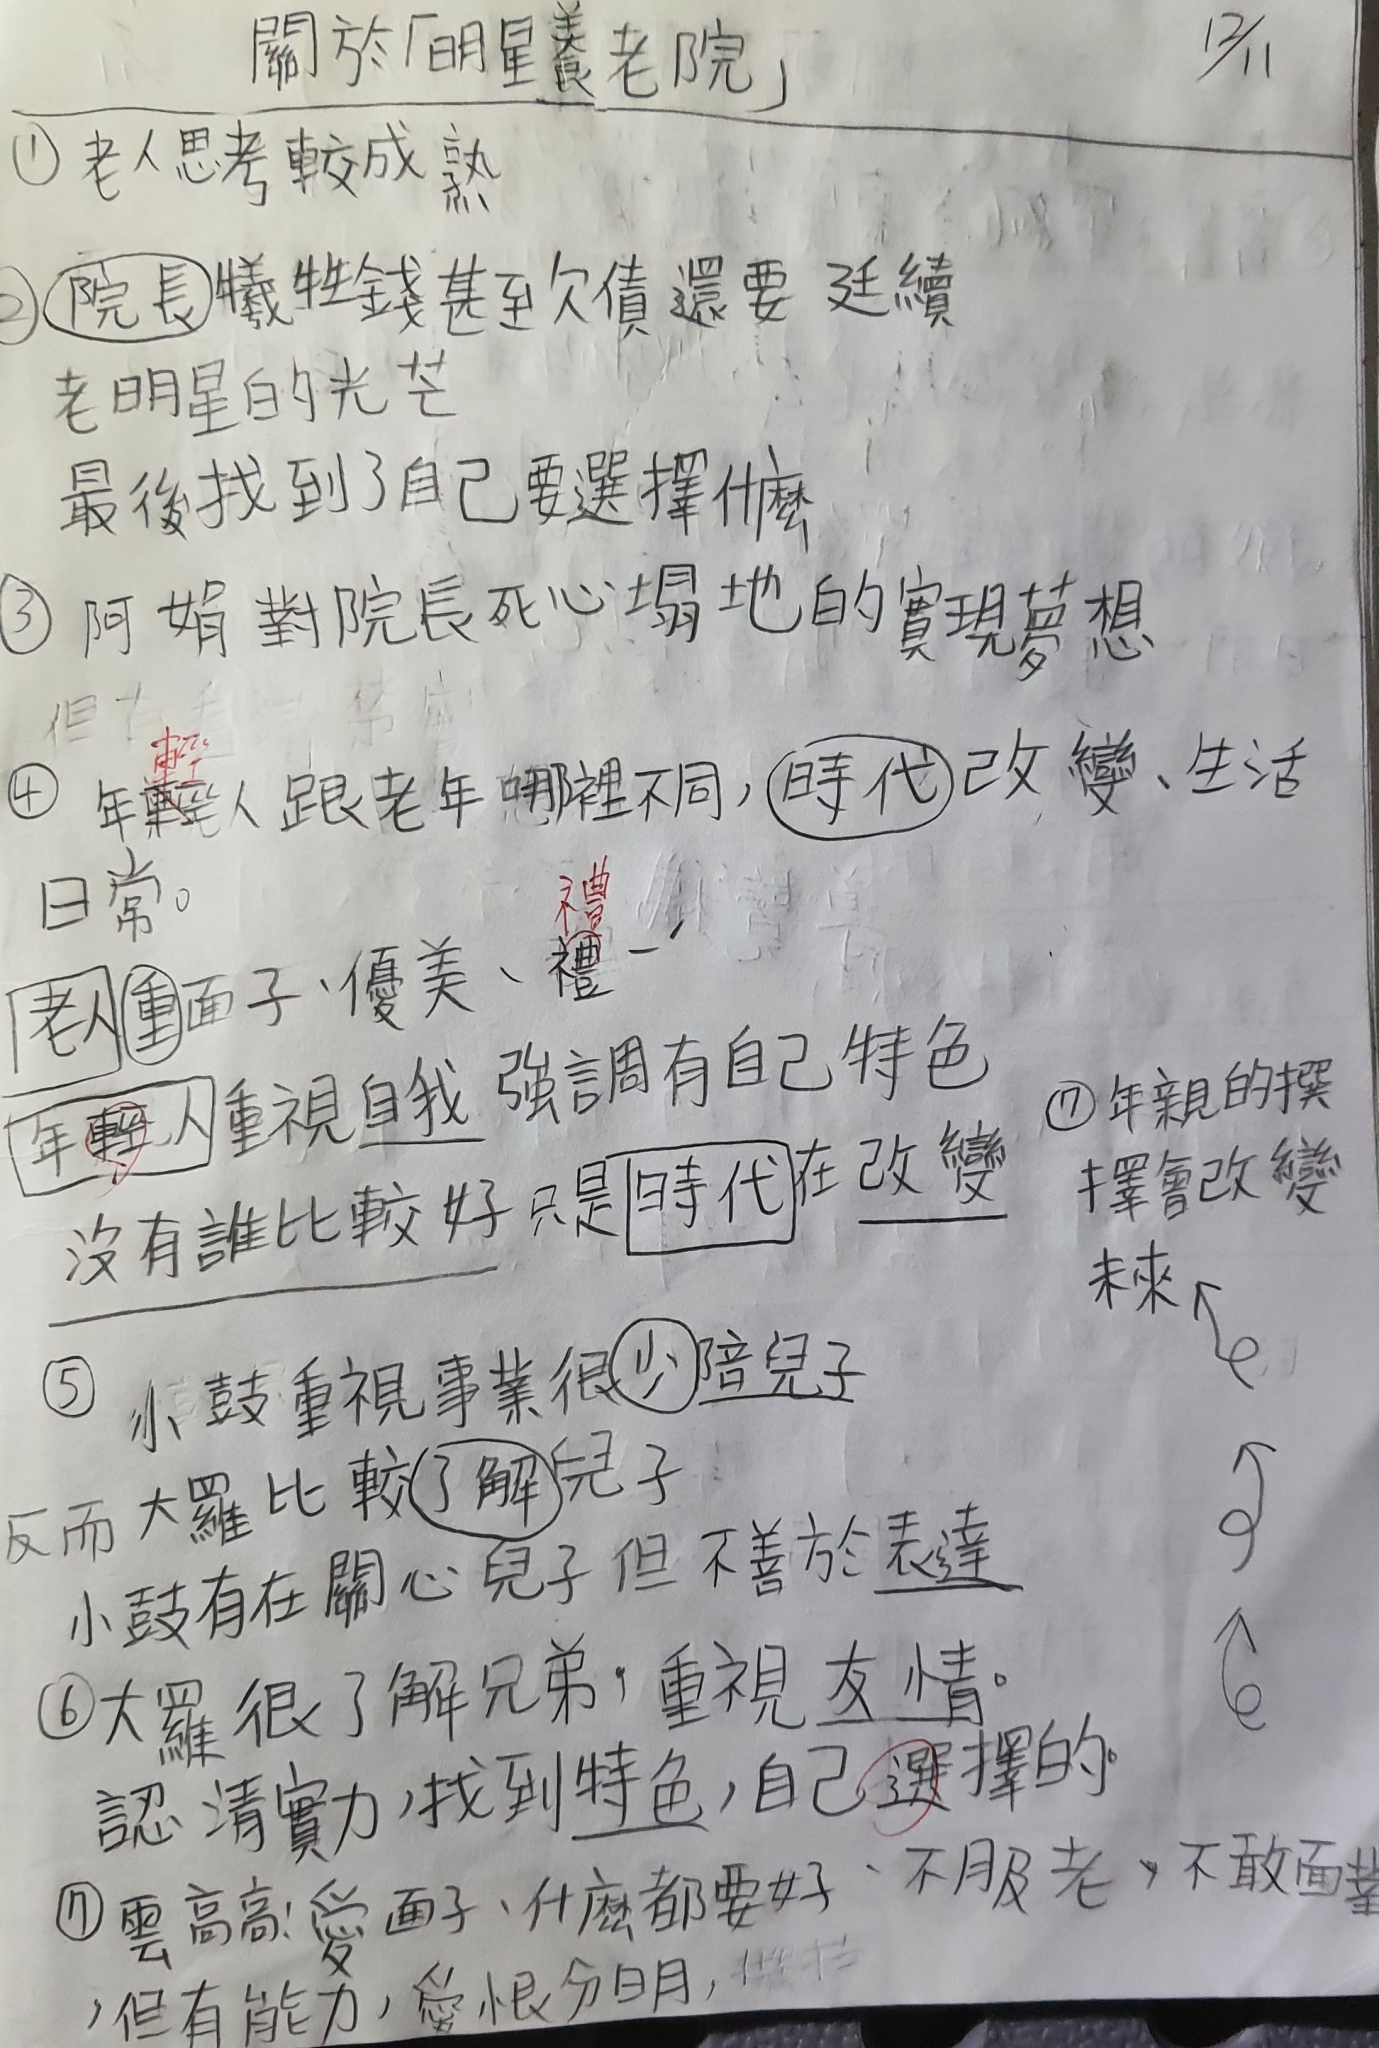 關於「明星養老院」 12/11
① 老人思考較成熟
② 院長犧牲錢甚至欠債還要 廷續
老明星的光芒
最後找到了自己要選擇什麼
③ 阿娟對院長死心塌地的實現夢想
但有
④ 年輕人跟老年哪裡不同，時代改變、生活
輕
日常。
禮
老人重面子、優美、禮一
年輕人重視自我 強調有自己特色
沒有誰比較好只是時代在改變
⑦年親的撰
擇會改變
未來
⑤ 小鼓重視事業很少陪兒子
反而大羅比較了解兒子
小鼓有在關心兒子但不善於表達
⑥大羅很了解兄弟，重視友情。
認清實力，找到特色，自己選擇的。
⑦ 雲高高：愛面子、什麼都要好、不服老，不敢面對
，但有能力，愛恨分明，